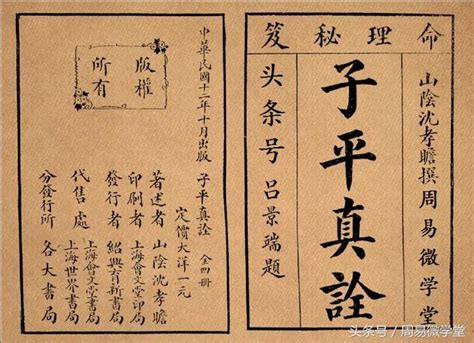 命理秘笈
山陰沈孝瞻撰周易微学堂
子平真詮
头条号吕景端題
中華民國十二年十月出版
子平真詮 全四冊
定價大洋一元
著述者 山陰沈孝瞻
印刷者 上海會文堂印局
發行者 紹興育新書局
代售處 上海會文堂書局
上海世界書局
分發行所 各大書局
版權
所有
头条号／周易微学堂